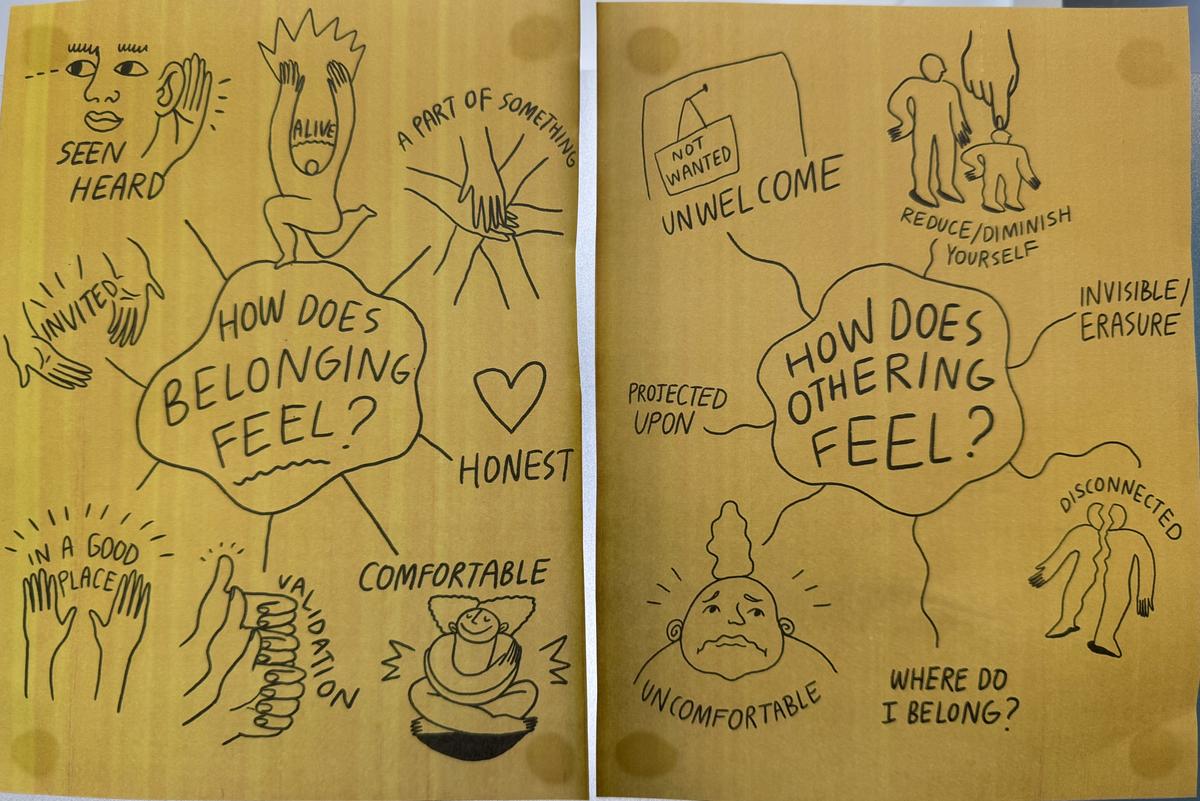 SEEN
HEARD
ALIVE
A PART OF SOMETHING
INVITED
HOW DOES
BELONGING
FEEL?
HONEST
IN A GOOD
PLACE
VALIDATION
COMFORTABLE
NOT
WANTED
UNWELCOME
REDUCE/DIMINISH
YOURSELF
INVISIBLE/
ERASURE
HOW DOES
OTHERING
FEEL?
PROJECTED
UPON
DISCONNECTED
UNCOMFORTABLE
WHERE DO
I BELONG?